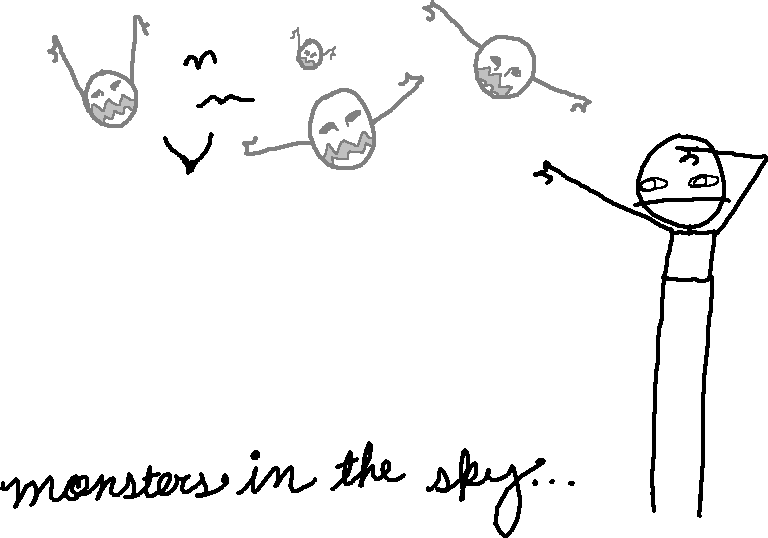 monsters in the sky...